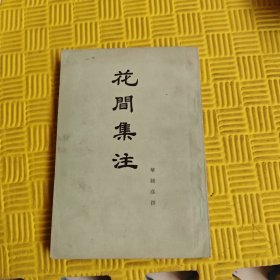 花間集注
華鍾彦撰